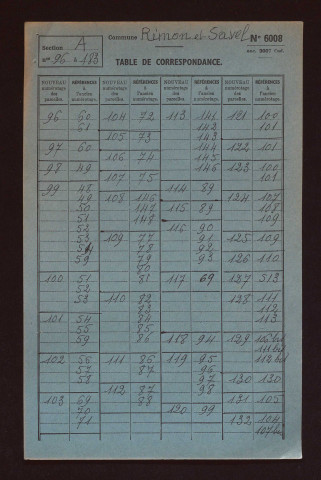 Commune Rimon et Savel N° 6008
Section A
N° 96 à 183
TABLE DE CORRESPONDANCE.
NOUVEAU numérotage des parcelles. RÉFÉRENCES à l'ancien numérotage. NOUVEAU numérotage des parcelles. RÉFÉRENCES à l'ancien numérotage. NOUVEAU numérotage des parcelles. RÉFÉRENCES à l'ancien numérotage. NOUVEAU numérotage des parcelles. RÉFÉRENCES à l'ancien numérotage.
96 60 104 72 113 141 121 100
61 142 101
105 73 143
97 60 144 122 101
106 74 145
98 49 146 123 100
107 75 101
99 48 114 89
49 108 146 124 107
50 147 115 89 108
51 148 109
52 116 90
53 109 77 91 125 109
54 78 92
59 79 93 126 110
80
100 51 81 117 69 127 513
52
53 110 82 128 111
83 112
101 54 84 113
55 85
59 86 118 94 129
102 56 111 86 119 95
57 87 96
58 97 130 130
112 87 98
103 69 88 131 105
70 120 99
71 132 104